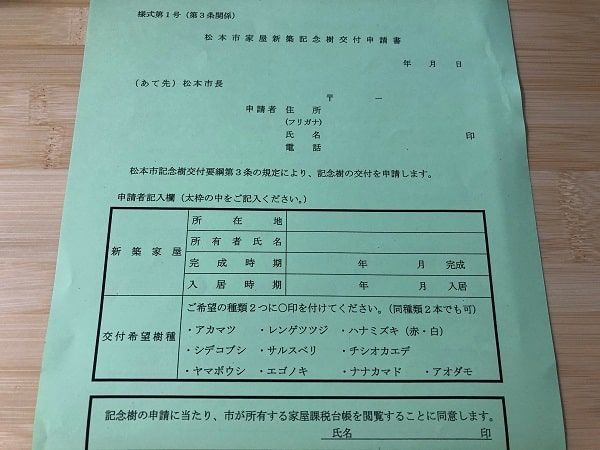 様式第1号（第3条関係）
松本市家屋新築記念樹交付申請書
年 月 日
（あて先）松本市長
〒 ―
申請者 住 所
（フリガナ）
氏 名 印
電 話
松本市記念樹交付要綱第3条の規定により、記念樹の交付を申請します。
申請者記入欄（太枠の中をご記入ください。）
新築家屋
所在地
所有者氏名
完成時期 年 月 完成
入居時期 年 月 入居
交付希望樹種
ご希望の種類2つに○印を付けてください。（同種類2本でも可）
・アカマツ ・レンゲツツジ ・ハナミズキ（赤・白）
・シデコブシ ・サルスベリ ・チシオカエデ
・ヤマボウシ ・エゴノキ ・ナナカマド ・アオダモ
記念樹の申請に当たり、市が所有する家屋課税台帳を閲覧することに同意します。
氏名 印